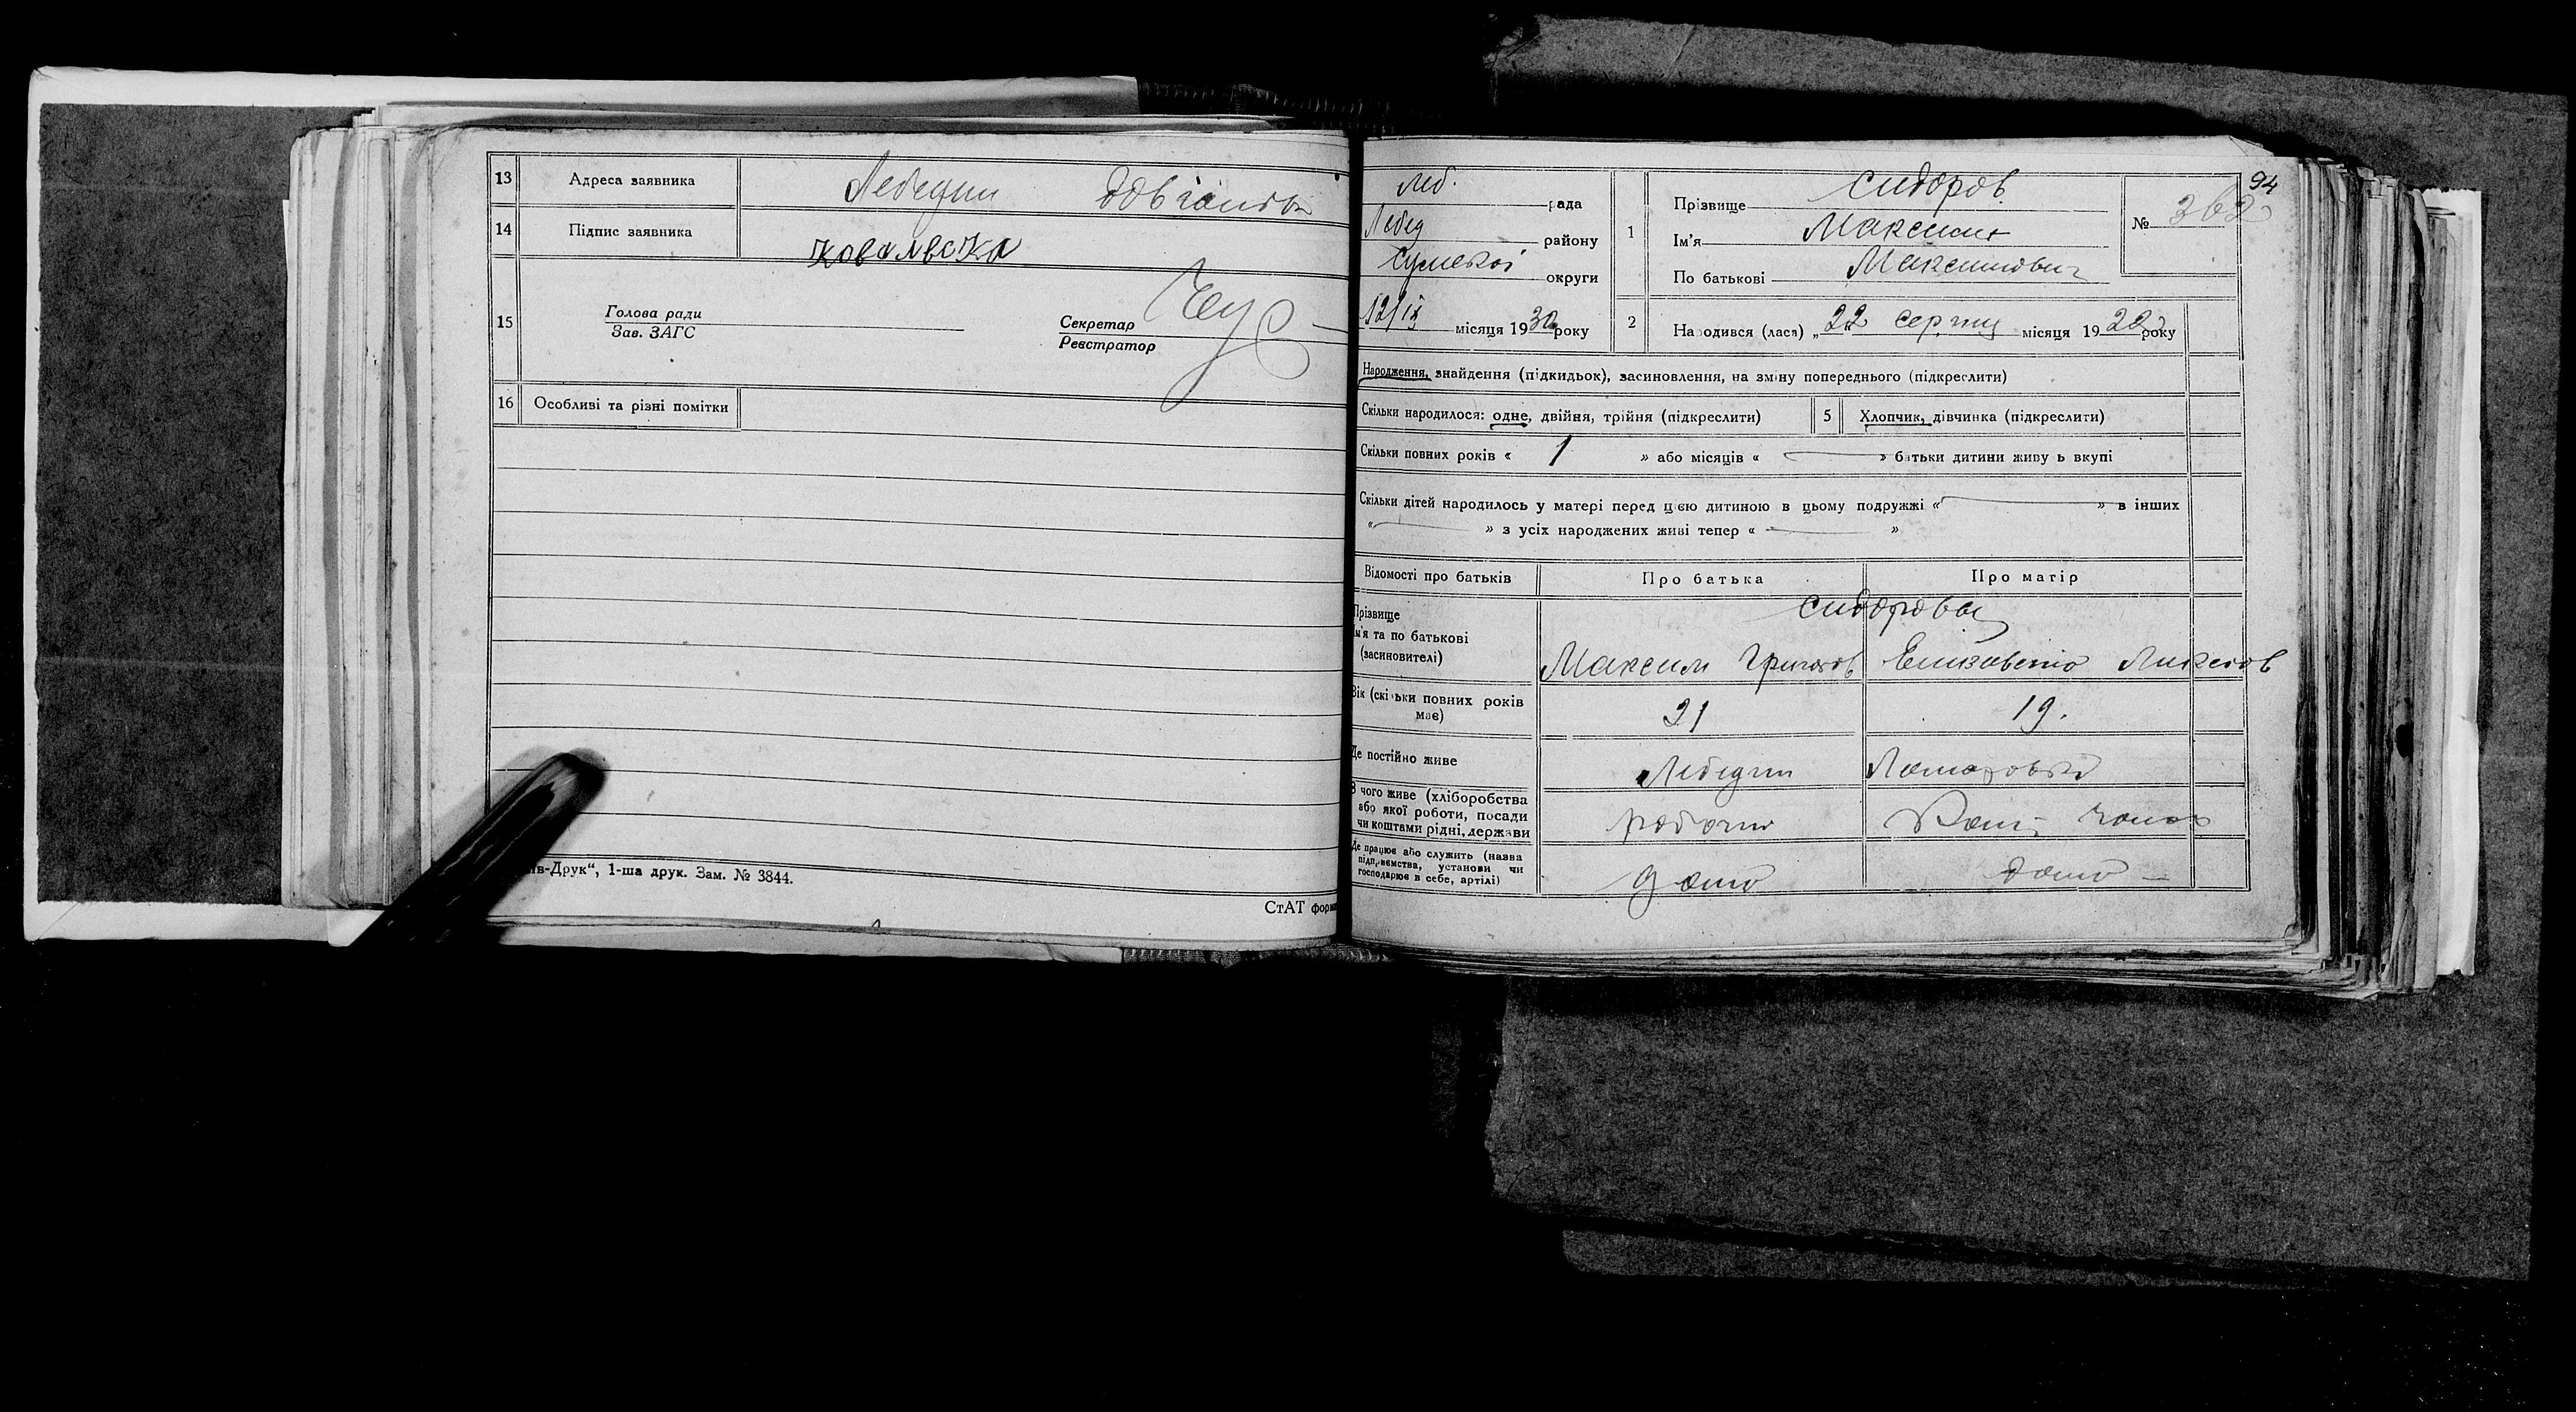 13 Адреса заявника Лебедин
14 Підпис заявника Ковалвска
15 Голова ради
Зав. ЗАГС
Секретар
Реєстратор
16 Особливі та різні помітки
ів-Друк“, 1-ша друк. Зам. № 3844.
СтАТ форм
94
Леб. рада
Лебед району
Сумської округи
12/ІХ місяця 1930 року
1 Прізвище Сидоров
Ім'я Максим
По батькові Максимович
№ 362
2 Народився (лася) „22 серпня місяця 19 року
Народження, знайдення (підкидьок), засиновлення, на зміну попереднього (підкреслити)
Скільки народилося: одне, двійня, трійня (підкреслити) 5 Хлопчик, дівчинка (підкреслити)
Скільки повних років « 1 » або місяців « — » батьки дитини живу ь вкупі
Скільки дітей народилось у матері перед цією дитиною в цьому подружжі « — » в інших
« — » з усіх народжених живі тепер « — »
Відомості про батьків Про батька Про матір
Прізвище Сидоровы
Ім'я та по батькові
(засиновителі) Максим Григоров Елизавета
Вік (скільки повних років
має) 21 19.
Де постійно живе Лебедин
З чого живе (хліборобства
або якої роботи, посади
чи коштами рідні, держави робочий
Де працює або служить (назва
підприємства, установи чи
господарює в себе, артілі)